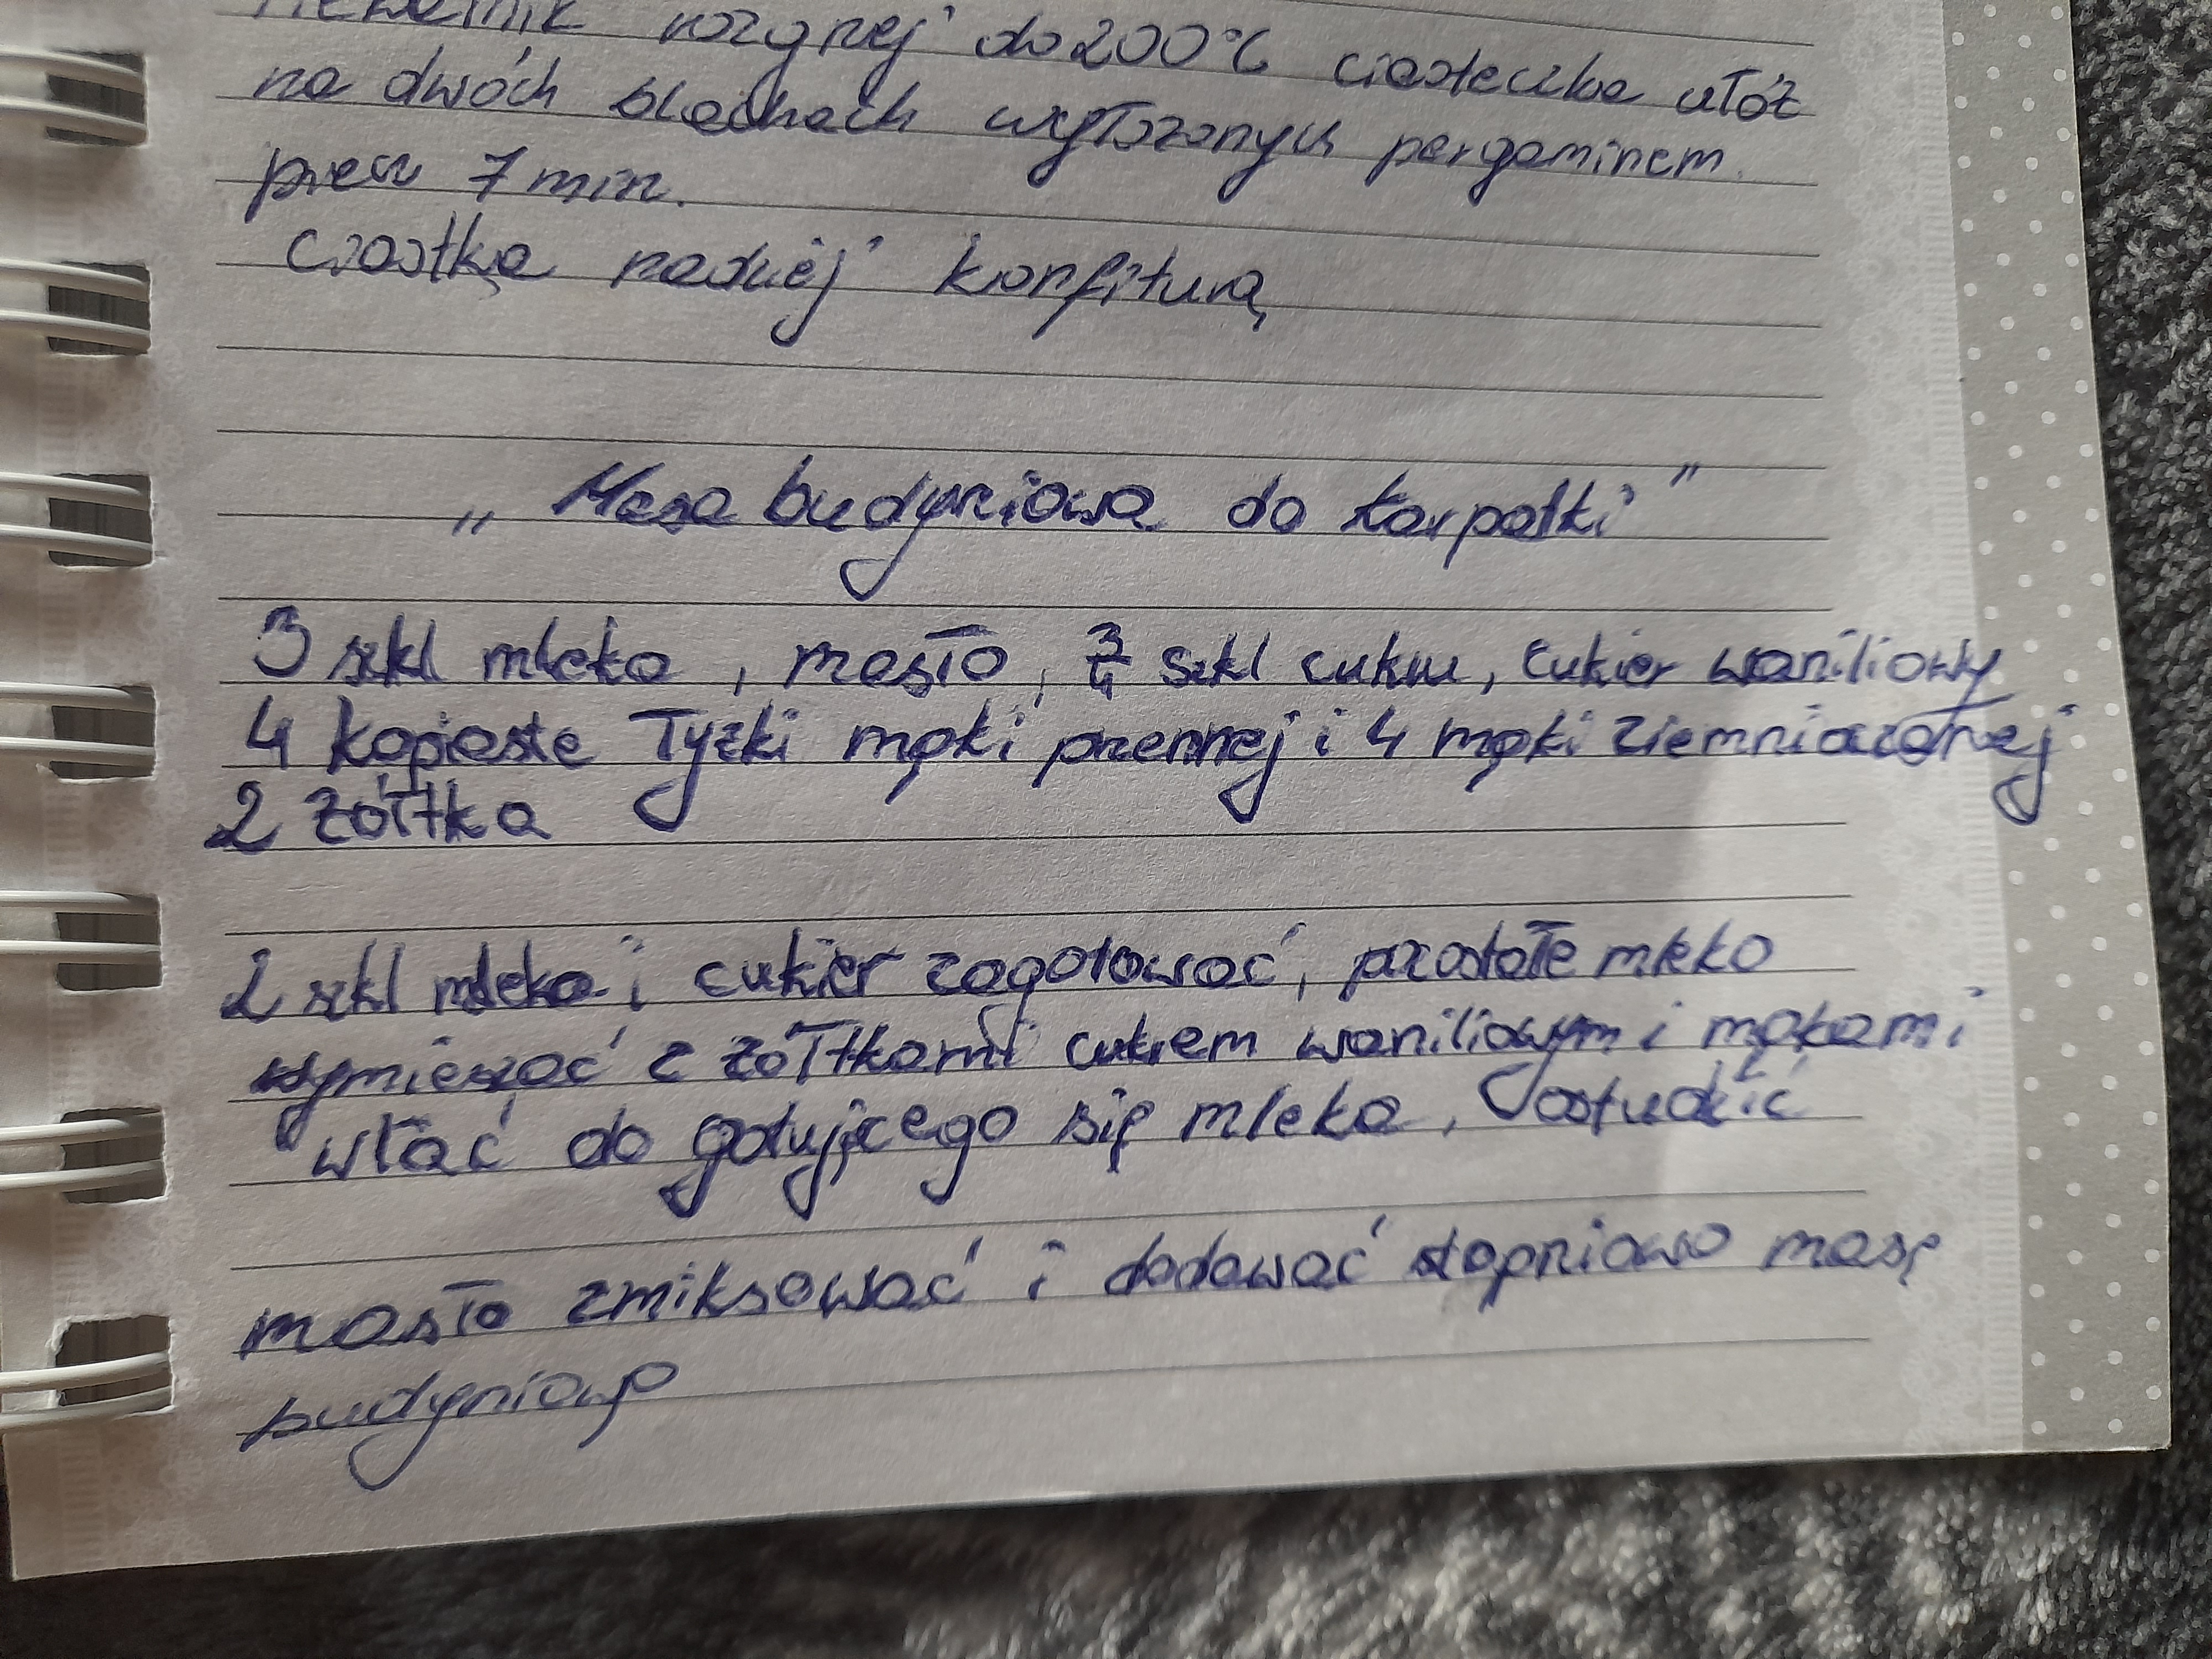 rozgrzej do 200°C ciasteczka ułóż
na dwóch blachach wyłożonych pergaminem.
przez 7 min.
Ciastka nadziej konfiturą
„Masa budyniowa do karpatki"
3 szkl mleka, masło, 3/4 szkl cukru, cukier waniliowy
4 kopiaste łyżki mąki pszennej i 4 mąki ziemniaczanej
2 żółtka
2 szkl mleka i cukier zagotować, pozostałe mleko
wymieszać z żółtkami cukrem waniliowym i mąkami
wlać do gotującego się mleka, ostudzić
masło zmiksować i dodawać stopniowo masę
budyniową